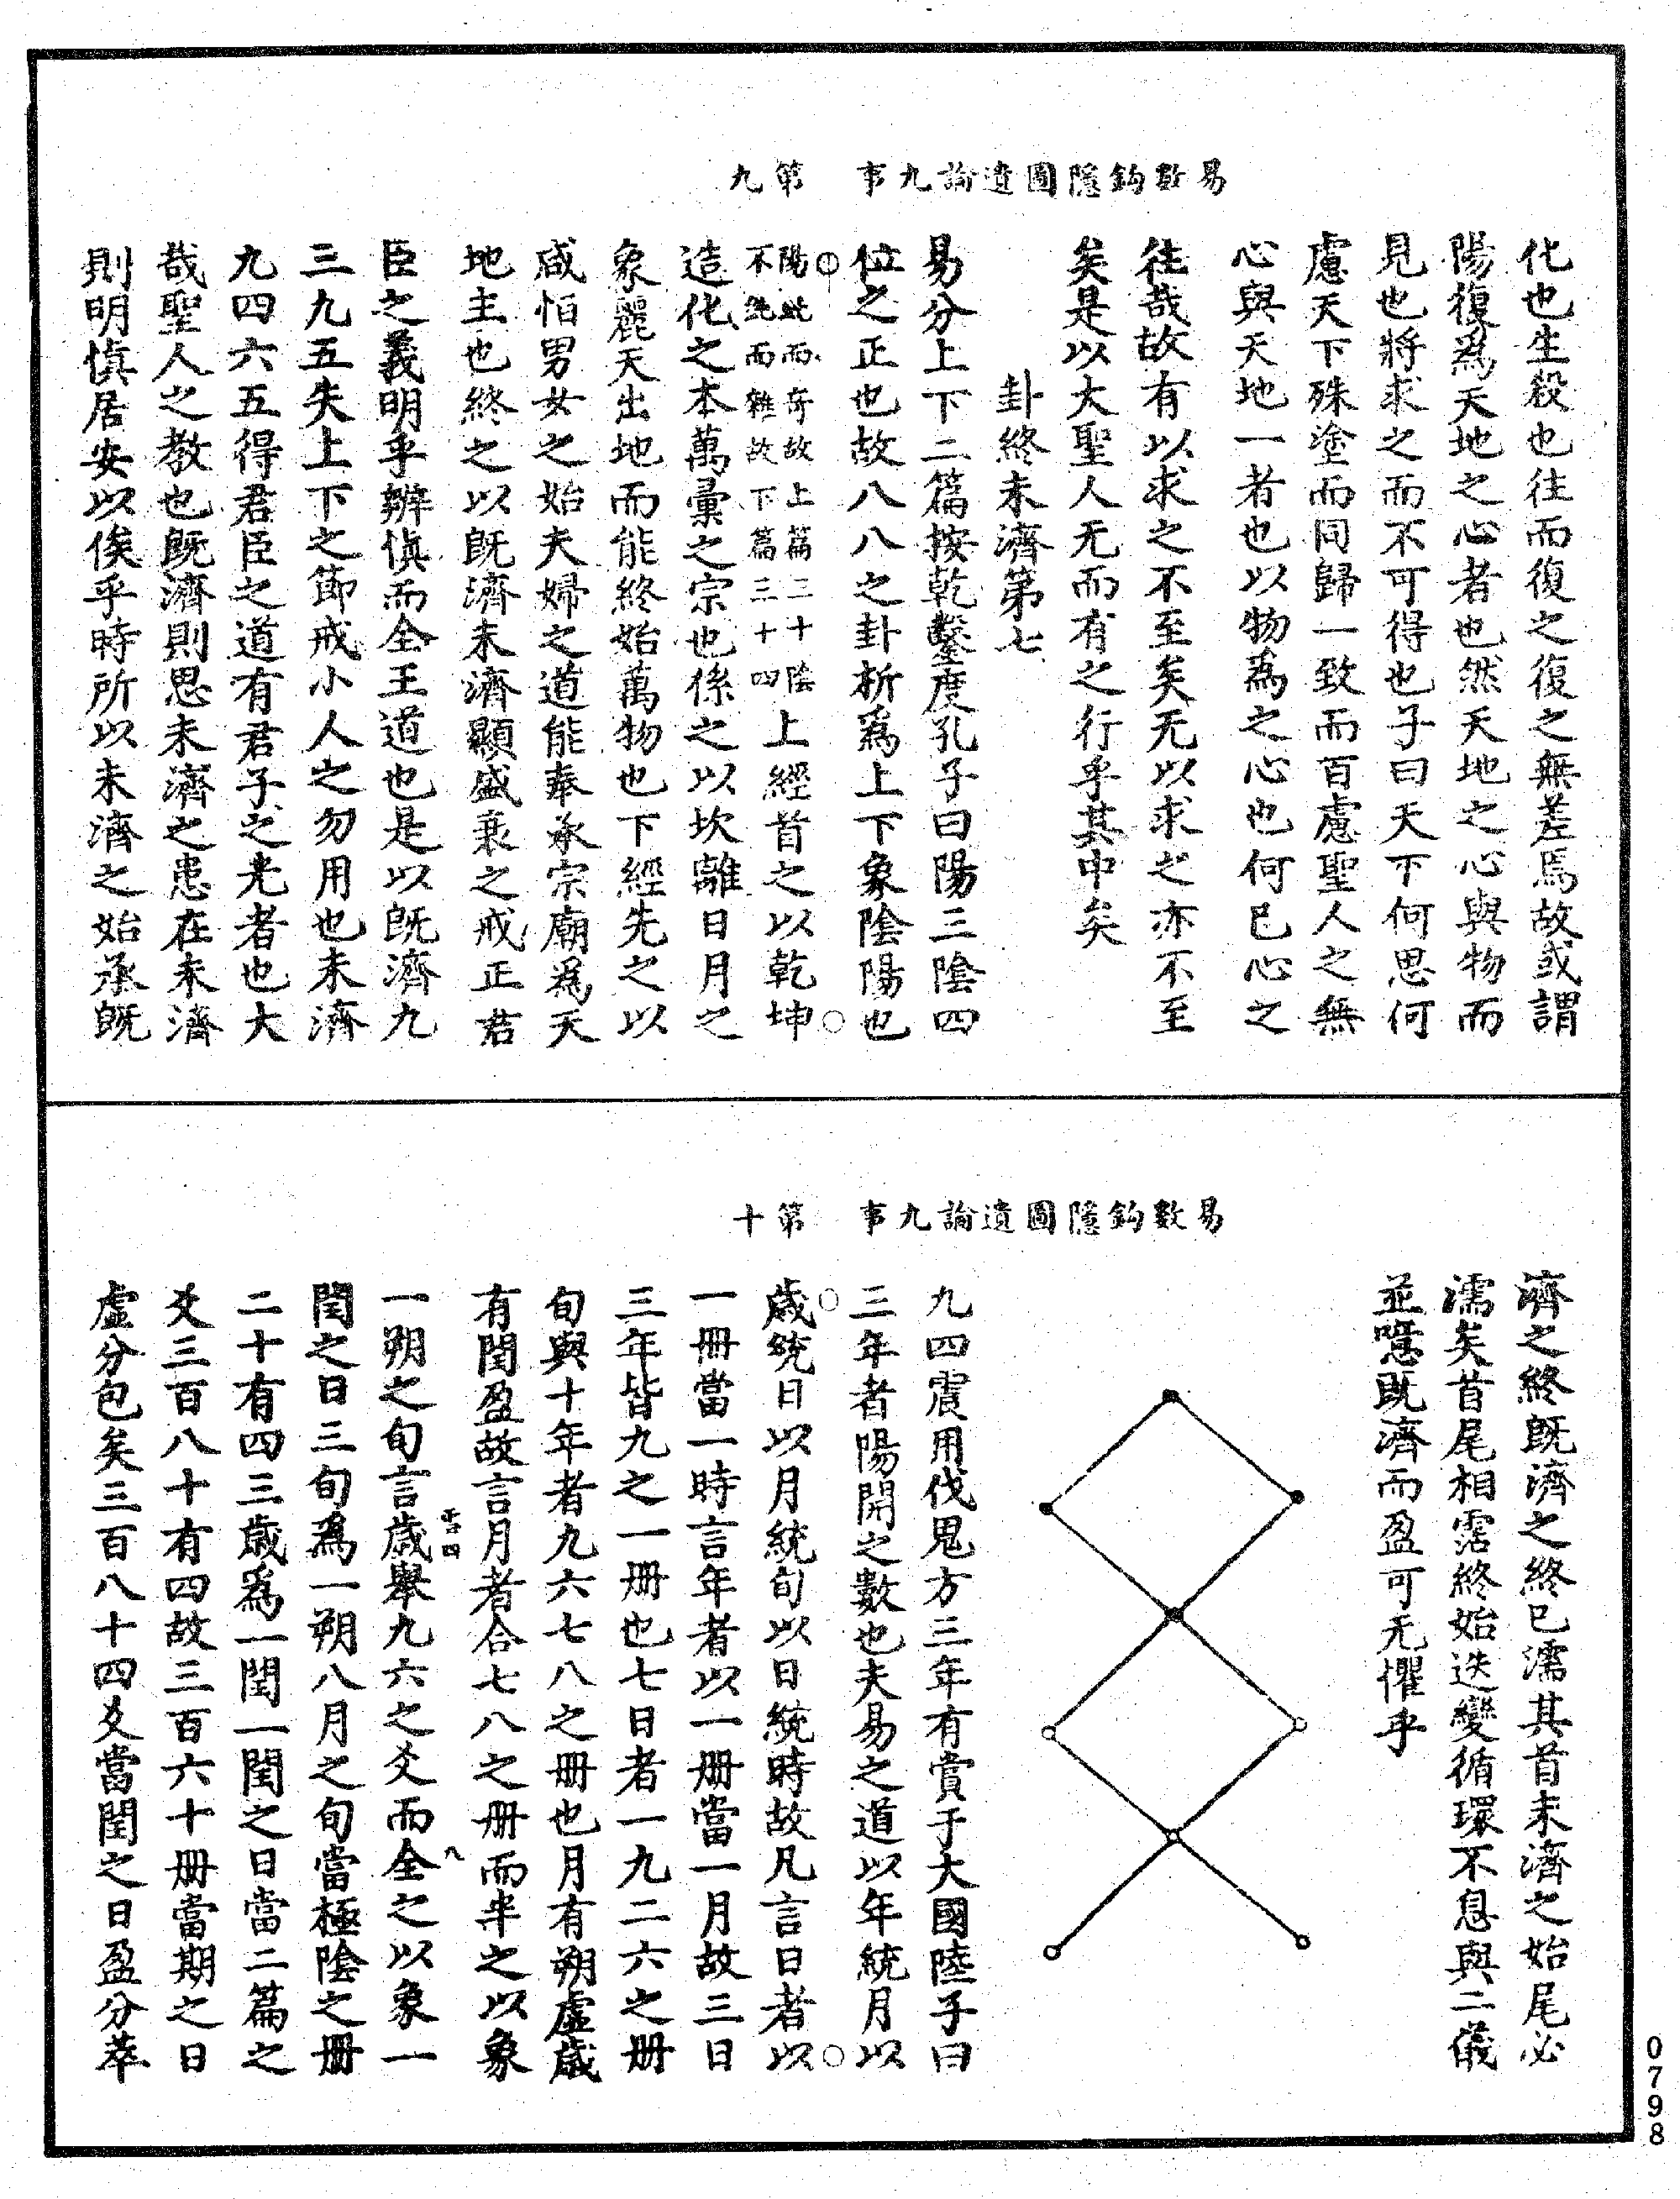 易數鈎隱圖遺論九事　第九
化也生殺也往而復之復之無差焉故或謂
陽復爲天地之心者也然天地之心與物而
見也將求之而不可得也子曰天下何思何
慮天下殊塗而同歸一致而百慮聖人之無
心與天地一者也以物爲之心也何已心之
往哉故有以求之不至矣无以求之亦不至
矣是以大聖人无而有之行乎其中矣
卦終未濟第七
易分上下二篇按乾鑿度孔子曰陽三陰四
位之正也故八八之卦析爲上下象陰陽也
陽純而奇故上篇三十陰
不純而雜故下篇三十四
上經首之以乾坤
造化之本萬彙之宗也係之以坎離日月之
象麗天出地而能終始萬物也下經先之以
咸怕男女之始夫婦之道能奉承宗廟爲天
地主也終之以既濟未濟顯盛衰之戒正君
臣之義明乎辨慎而全王道也是以既濟九
三九五失上下之節戒小人之勿用也未濟
九四六五得君臣之道有君子之光者也大
哉聖人之教也既濟則思未濟之患在未濟
則明慎居安以俟乎時所以未濟之始承既
易數鈎隱圖遺論九事　第十
濟之終既濟之終已濡其首未濟之始尾必
濡矣首尾相霑終始迭變循環不息與二儀
並噫既濟而盈可无懼乎
九四震用伐鬼方三年有賞于大國陸子曰
三年者陽開之數也夫易之道以年統月以
歲統日以月統旬以日統時故凡言日者以
一冊當一時言年者以一冊當一月故三日
三年皆九之一冊也七日者一九二六之冊
旬與十年者九六七八之冊也月有朔虛歲
有閏盈故言月者合七八之冊而半之以象
一朔之旬言歲舉九六之爻而全之以象一
閏之日三旬爲一朔八月之旬當極陰之冊
二十有四三歲爲一閏一閏之日當二篇之
爻三百八十有四故三百六十冊當期之日
虛分包矣三百八十四爻當閏之日盈分萃
八
0798